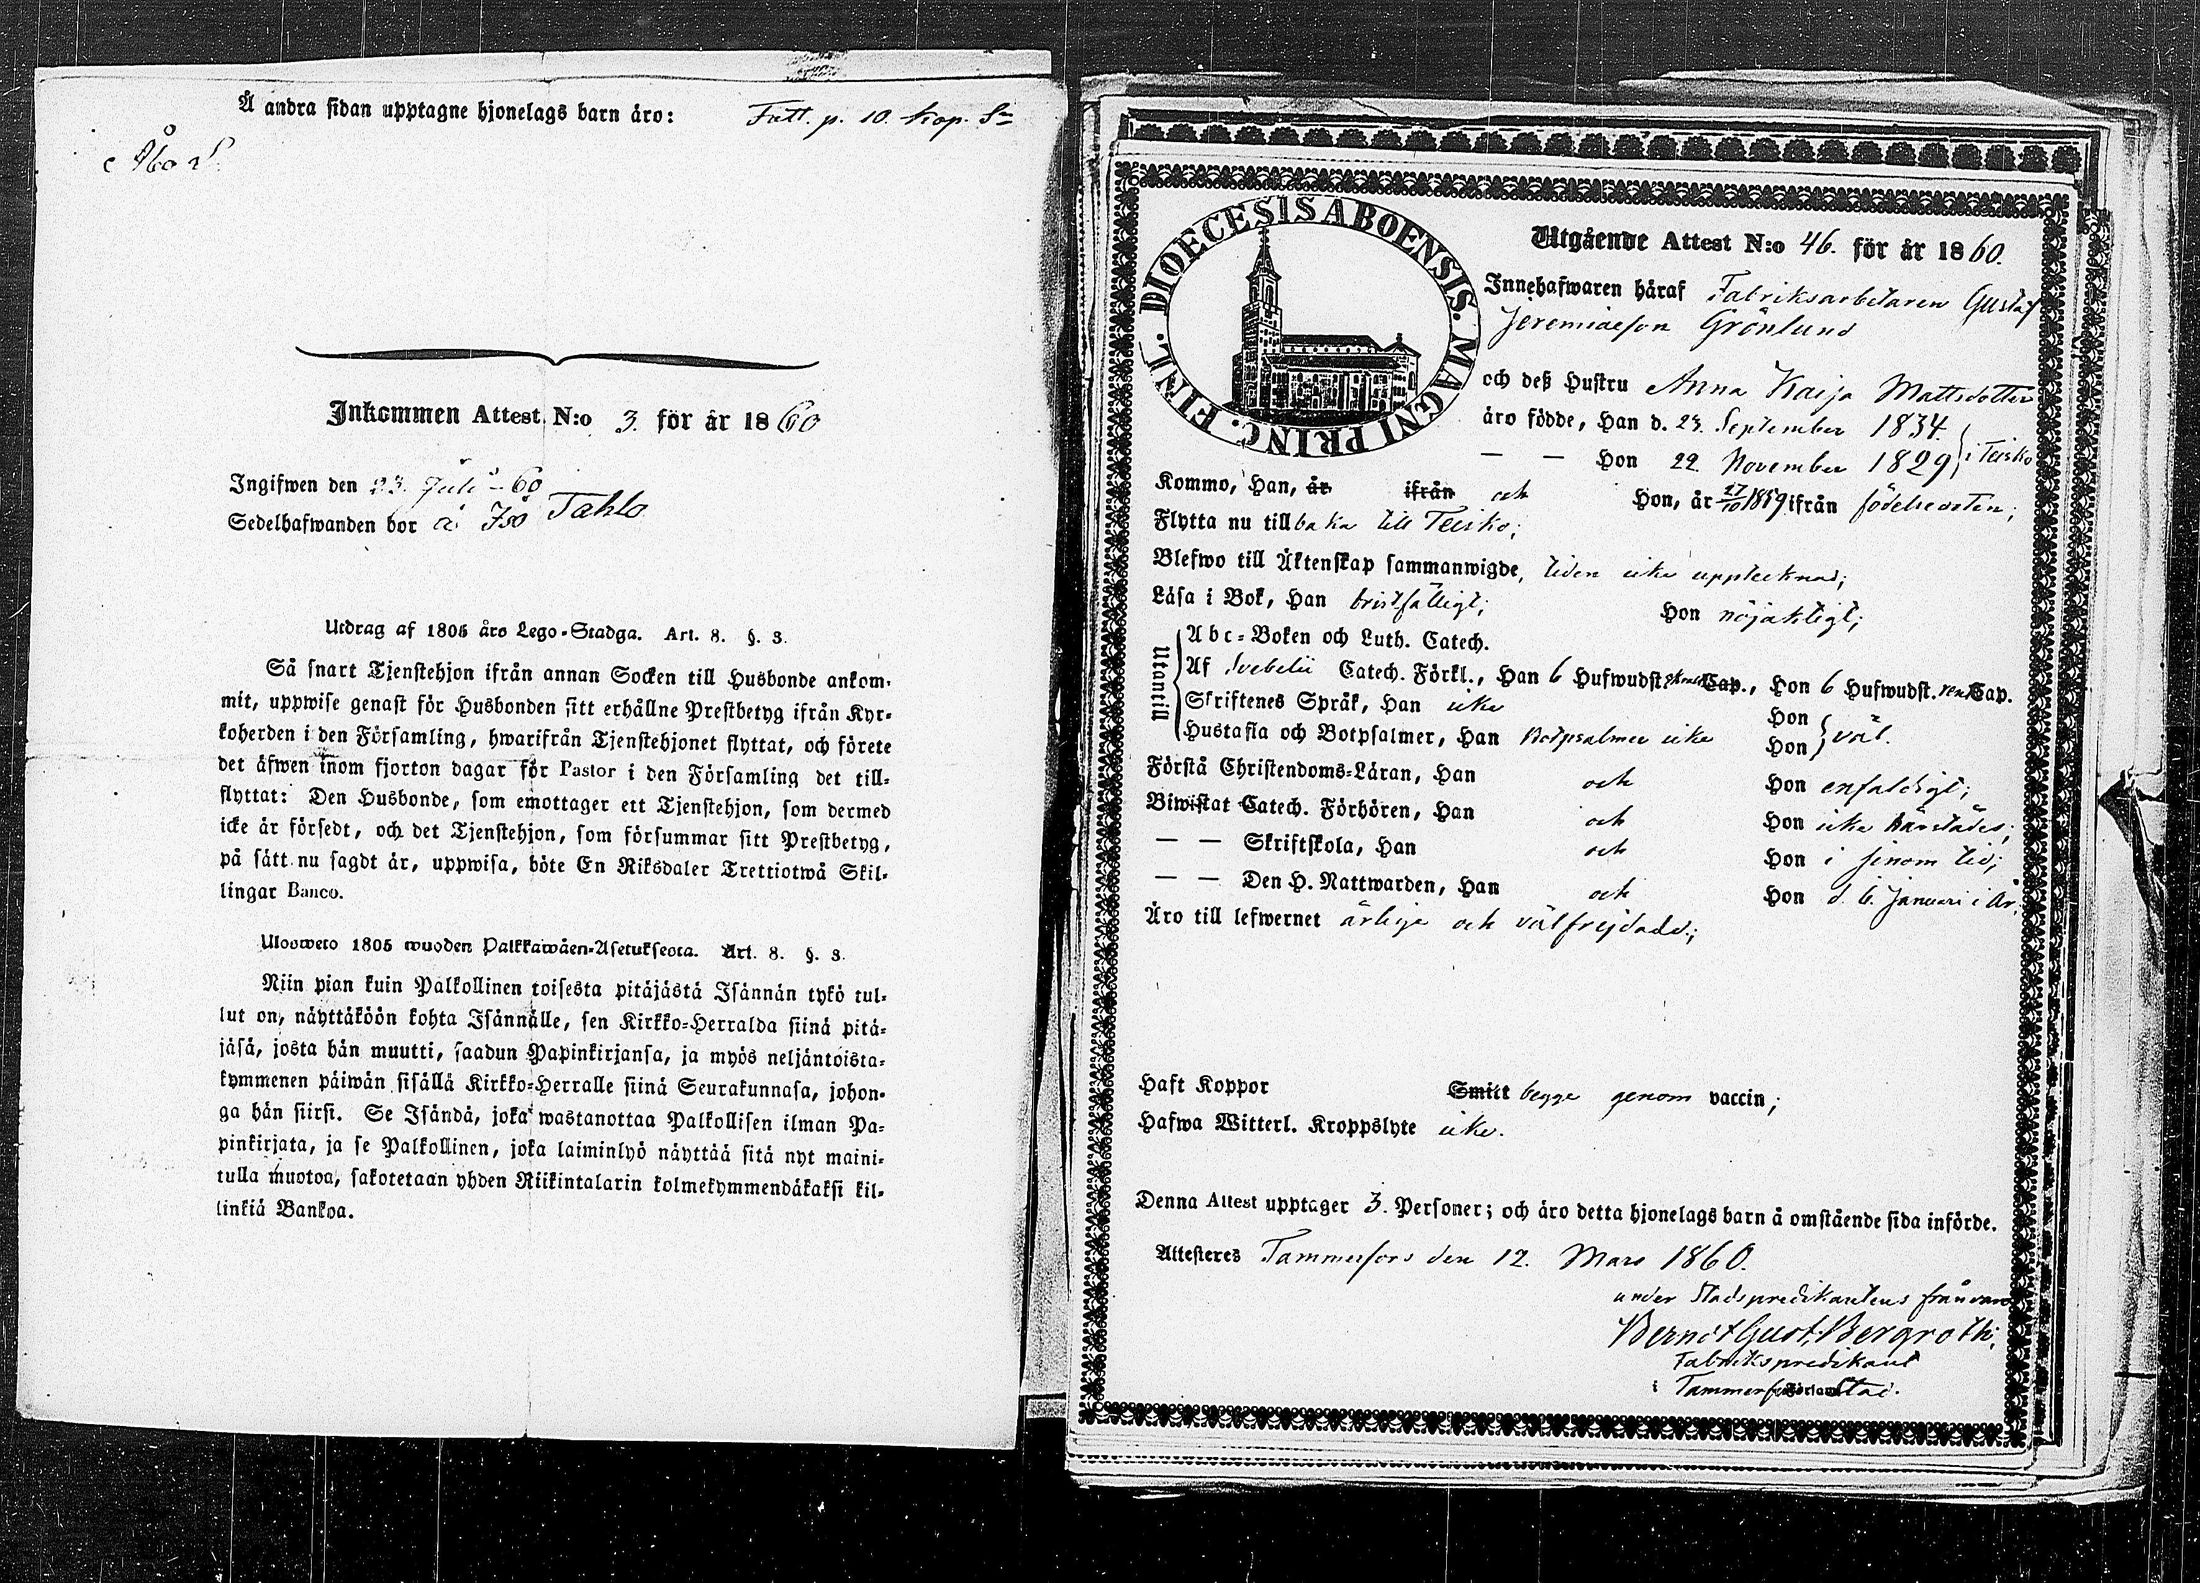 Å andra sidan upptagne hjonelags barn äro:
Fatt. p. 10. kop. Sr
Åbo
Inkommen Attest N:o 3 för år 1860
Ingifwen den 23. Juli - 60
Sedelhafwanden bor å Iso Tahlo
Utdrag af 1805 års Lego-Stadga. Art. 8. §. 3.
Så snart Tjenstehjon ifrån annan Socken till Husbonde ankom-
mit, uppwise genast för Husbonden sitt erhållne Prestbetyg ifrån Kyr-
koherden i den Församling, hwarifrån Tjenstehjonet flyttat, och förete
det äfwen inom fjorton dagar för Pastor i den Församling det till-
flyttat: Den Husbonde, som emottager ett Tjenstehjon, som dermed
icke är försedt, och det Tjenstehjon, som försummar sitt Prestbetyg,
på sätt nu sagdt är, uppwisa, böte En Riksdaler Trettiotwå Skil-
lingar Banco.
Ulosweto 1805 wuoden Palkkawäen-Asetuksesta. Art. 8. §. 3.
Niin pian kuin Palkollinen toisesta pitäjästä Isännän tykö tul-
lut on, näyttäköön kohta Isännälle, sen Kirkko-Herralda siinä pitä-
jäsä, josta hän muutti, saadun Papinkirjansa, ja myös neljäntoista-
kymmenen päiwän sisällä Kirkko-Herralle siinä Seurakunnasa, johon-
ga hän siirsi. Se Isändä, joka wastanottaa Palkollisen ilman Pa-
pinkirjata, ja se Palkollinen, joka laiminlyö näyttää sitä nyt maini-
tulla muotoa, sakotetaan yhden Riikintalarin kolmekymmendäkaksi kil-
linkiä Bankoa.
DIOECESIS ABOENSIS. MAGNI PRINC. FINL.
Utgående Attest N:o 46. för år 1860.
Innehafwaren häraf Fabriksarbetaren Gustaf
Jeremiaeson Grönlund
och deß Hustru Anna Kaija Mattsdotter
äro födde, Han d. 23. September 1834.
— — Hon 22. November 1829 i Teisko
Kommo, Han, år ifrån och Hon, år 27/10 1859 ifrån födelseorten;
Flytta nu till baka till Teisko;
Blefwo till Äktenskap sammanwigde, tiden icke upptecknad;
Läsa i Bok, Han bristfälligt; Hon nöjaktigt;
Utantill
Abc-Boken och Luth. Catech.
Af Svebelii Catech. Förkl., Han 6 Hufwudst. Cap., Hon 6 Hufwudst. Cap.
Skriftenes Språk, Han icke Hon
Hustafla och Botpsalmer, Han Botpsalmer icke Hon väl.
Förstå Christendoms-Läran, Han och Hon enfaldigt;
Biwistat Catech. Förhören, Han och Hon icke härstädes;
— — Skriftskola, Han och Hon i sinom tid;
— — Den H. Nattwarden, Han och Hon d. 6. Januari i År.
Äro till lefwernet ärlige och välfrejdade;
Haft Koppor Smitt begge genom vaccin;
Hafwa Witterl. Kroppslyte icke.
Denna Attest upptager 3. Personer; och äro detta hjonelags barn å omstående sida införde.
Attesteres Tammerfors den 12. Mars 1860.
under Stadspredikantens frånvaro
Berndt Gust. Bergroth;
Fabrikspredikant
i Tammerfors Stad.